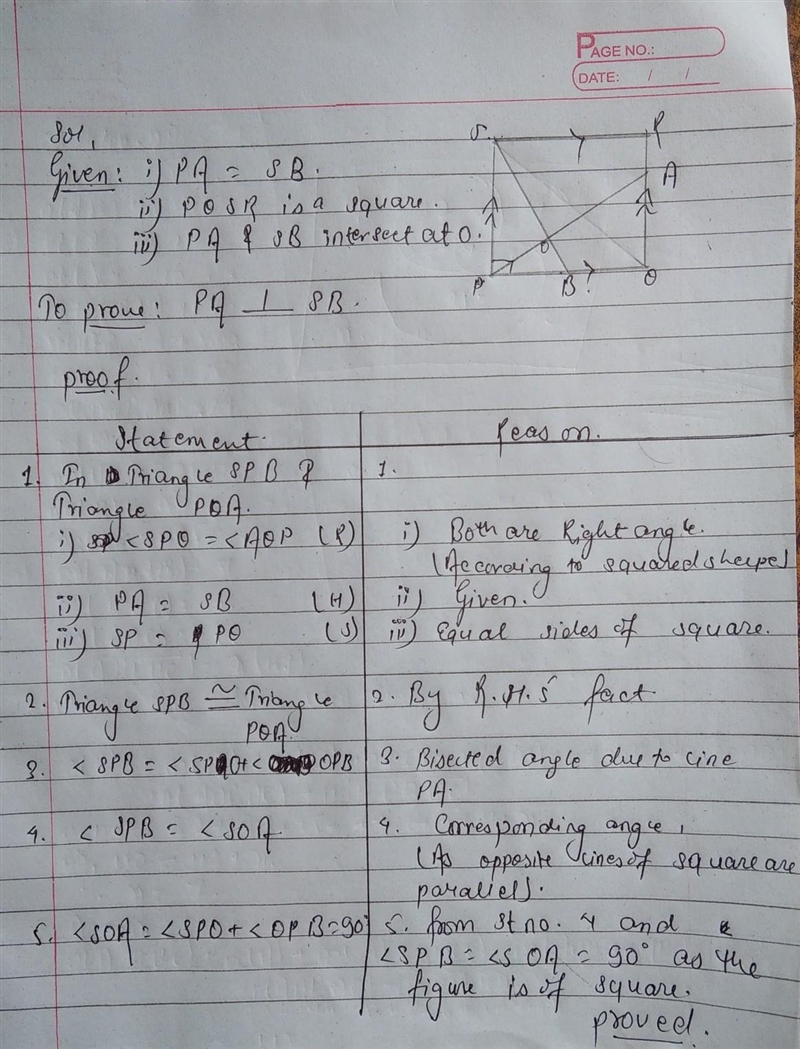 PAGE NO.:
DATE: / /
Sol,
Given: i) PA = SB.
ii) PQSR is a square.
iii) PA & SB intersect at O.
S R
A
O
P B Q
To prove: PA ⊥ SB.
proof.
Statement. Reason.
1. In Triangle SPB & 1.
Triangle PQA.
i) <SPQ = <AQP (R) i) Both are Right angle.
(According to squared sheape)
ii) PA = SB (H) ii) Given.
iii) SP = PQ (S) iii) Equal sides of square.
2. Triangle SPB ≅ Triangle 2. By R.H.S fact
PQA.
3. < SPB = < SPO + < OPB 3. Bisected angle due to line
PA.
4. < SPB = < SOA 4. Corresponding angle,
(As opposite lines of square are
parallel).
5. <SOA = <SPO + < OPB = 90° 5. from St no. 4 and
<SPB = <SOA = 90° as the
figure is of square.
proved.